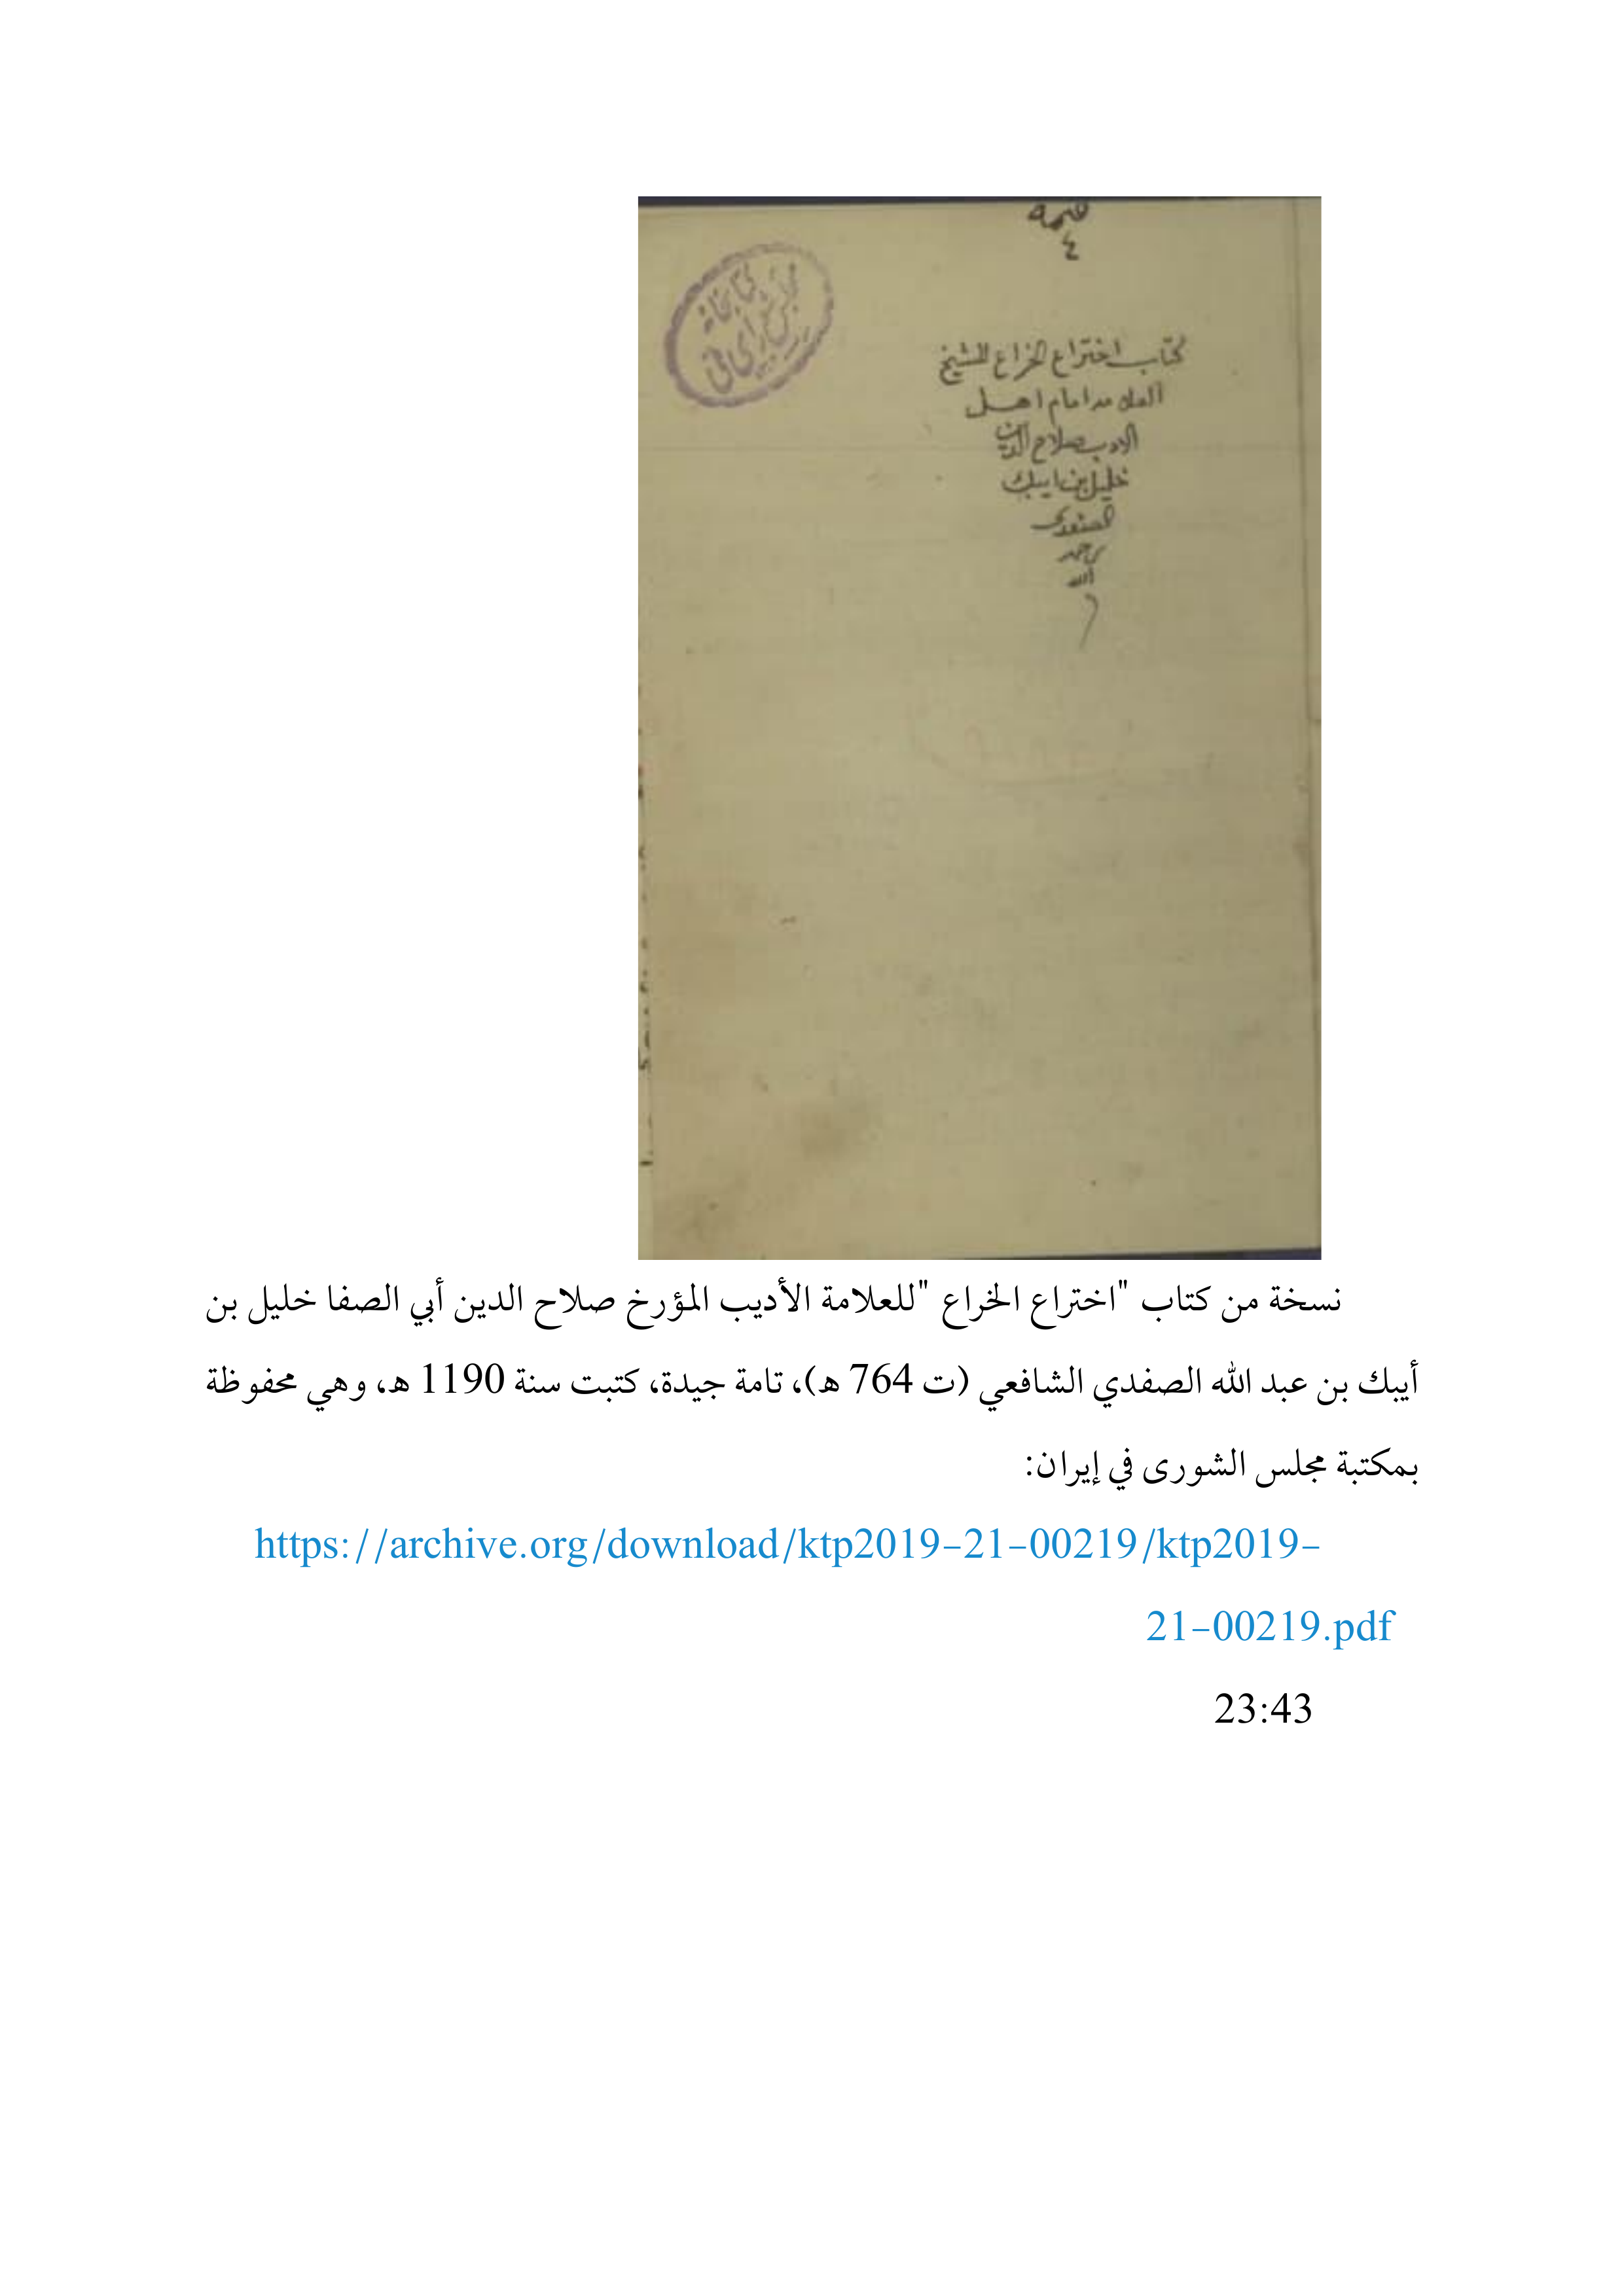 قيمه
٤
كتابخانه
مجلس شورای ملی
كتاب اختراع الخراع للشيخ
العلامه امام اهل
الادب صلاح الدين
خليل بن ايبك
الصفدي
رحمه
الله
نسخة من كتاب "اختراع الخراع "للعلامة الأديب المؤرخ صلاح الدين أبي الصفا خليل بن
أيبك بن عبد الله الصفدي الشافعي (ت 764 ه)، تامة جيدة، كتبت سنة 1190 ه، وهي محفوظة
بمكتبة مجلس الشورى في إيران:
https://archive.org/download/ktp2019-21-00219/ktp2019-
21-00219.pdf
23:43